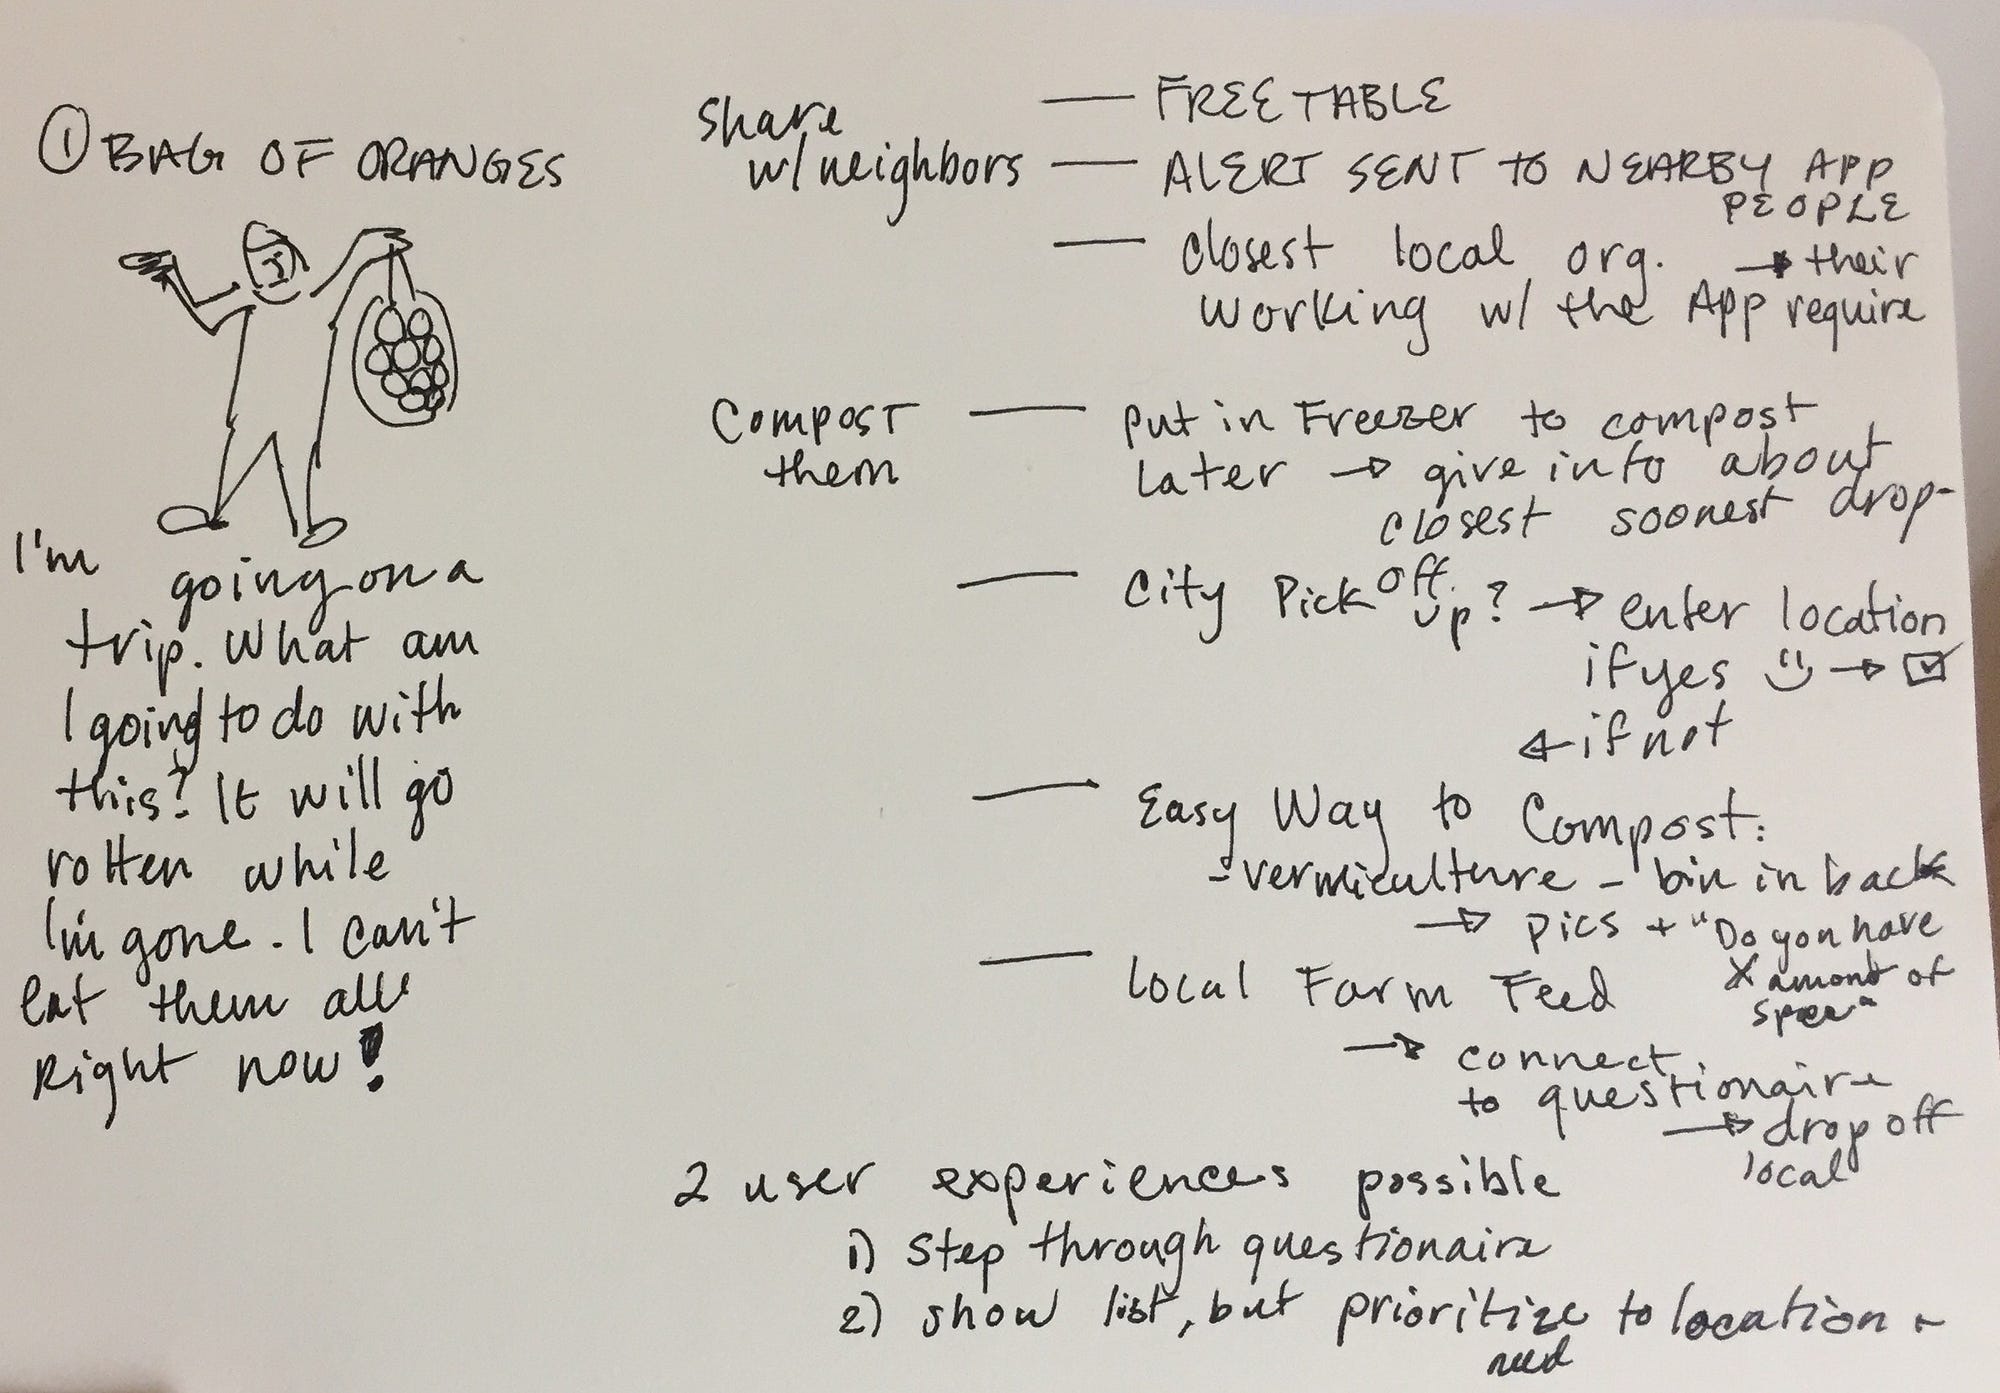 ① BAG OF ORANGES
I'm going on a
trip. What am
I going to do with
this? It will go
rotten while
I'm gone. I can't
eat them all
Right now!
Share
w/ neighbors
— FREE TABLE
— ALERT SENT TO NEARBY APP
PEOPLE
— Closest local org. → their
working w/ the App require
Compost
them
— Put in Freezer to compost
Later → give info about
closest soonest drop-
off.
— City Pick up? → enter location
if yes → ☑
← if not
— Easy Way to Compost:
- vermiculture - bin in back
→ pics + "Do you have
X amont of
space"
— Local Farm Feed
→ connect
to questionaire
→ drop off
local
2 user experiences possible
1) Step through questionaire
2) show list, but prioritize to location +
need